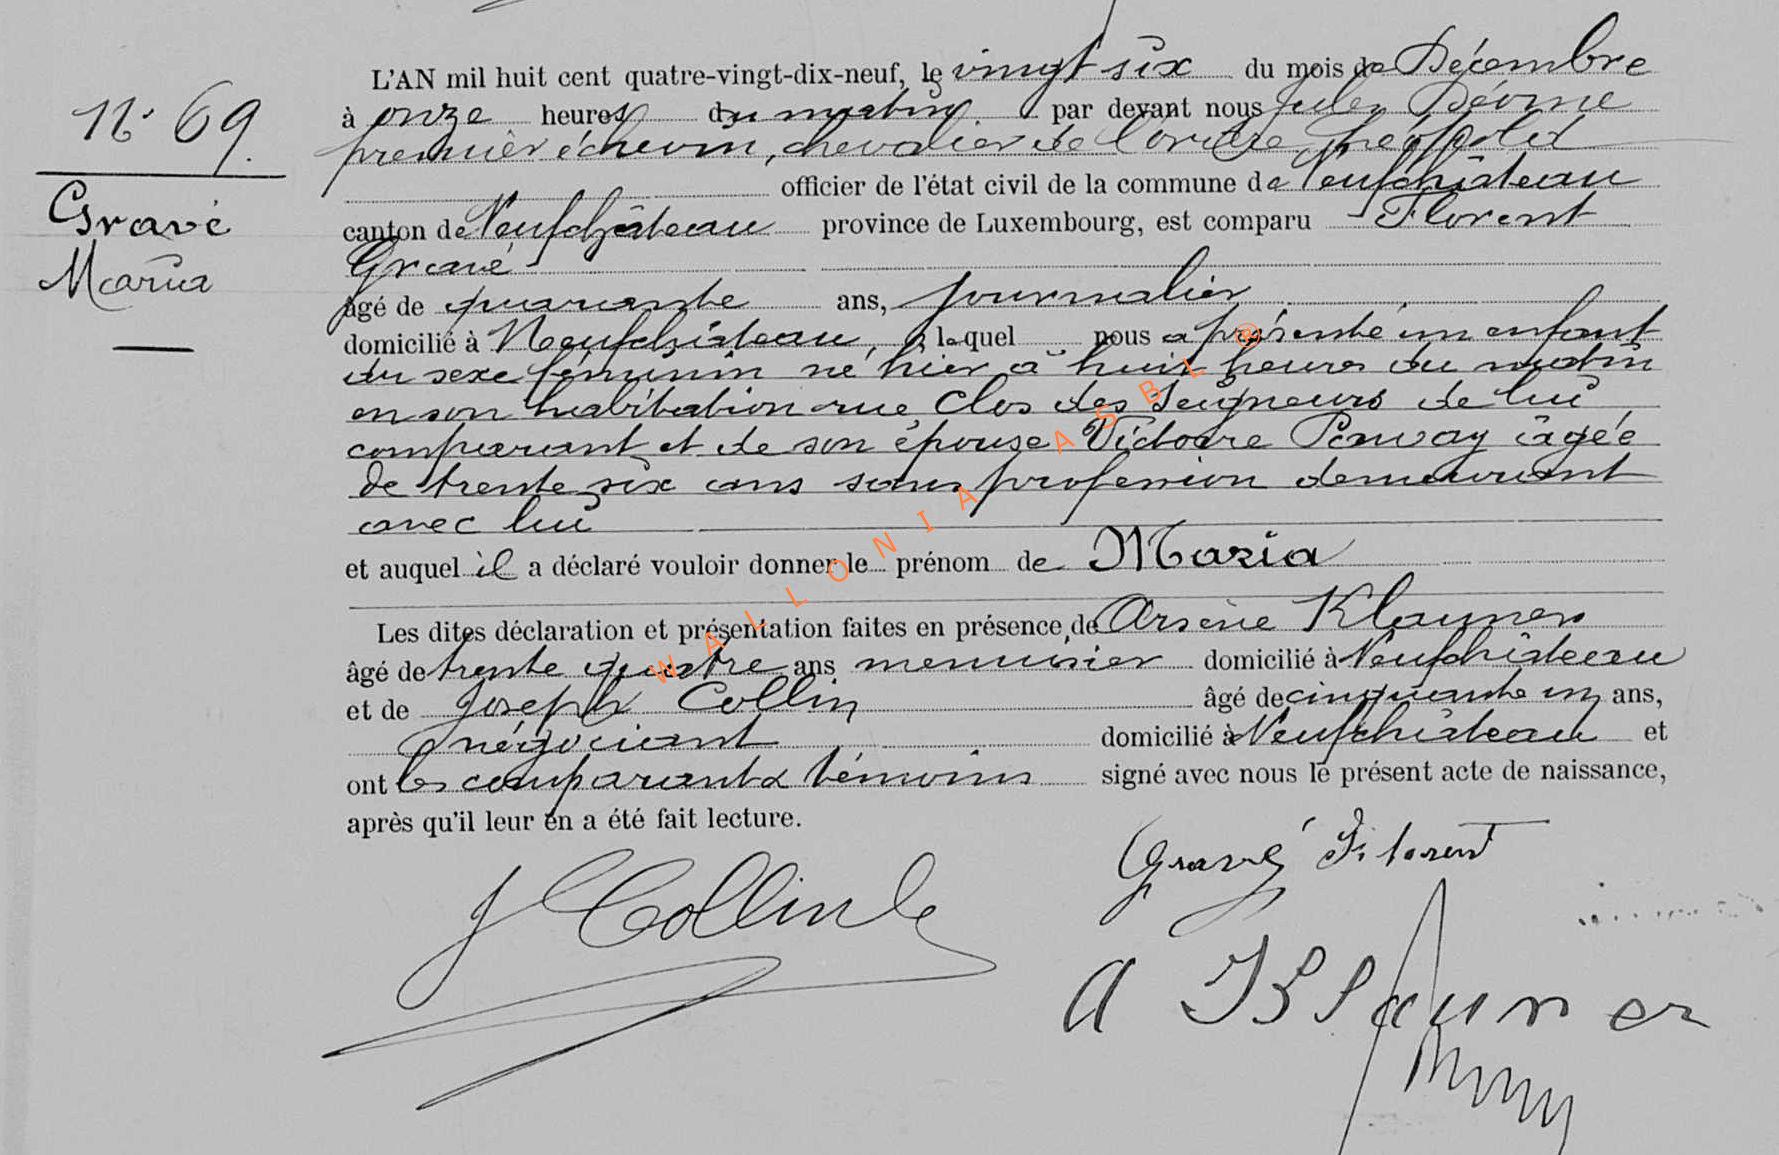 N° 69.
Gravé
Maria
L'AN mil huit cent quatre-vingt-dix-neuf, le vingt six du mois de Décembre
à onze heures du matin par devant nous Jules Déome
premier échevin, chevalier de l'ordre Léopold
officier de l'état civil de la commune de Neufchâteau
canton de Neufchâteau province de Luxembourg, est comparu Florent
Gravé
âgé de quarante ans, journalier
domicilié à Neufchâteau, lequel nous a présenté un enfant
du sexe féminin né hier à huit heures du matin
en son habitation rue Clos des Seigneurs de lui
comparant et de son épouse Victoire Panvay âgée
de trente six ans sans profession demeurant
avec lui
et auquel il a déclaré vouloir donner le prénom de Maria
Les dites déclaration et présentation faites en présence de Arsène Klauner
âgé de trente quatre ans menuisier domicilié à Neufchâteau
et de Joseph Collin âgé de cinquante un ans,
négociant domicilié à Neufchâteau et
ont les comparant & témoins signé avec nous le présent acte de naissance,
après qu'il leur en a été fait lecture.
Gravé Florent
J Collin
A Klauner
WALLONIA ASBL ®